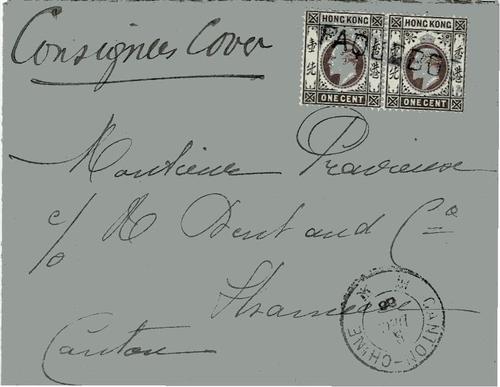 Consignees Cover
HONG KONG HONG KONG
PAQUEBOT
ONE CENT ONE CENT
Monsieur
c/o H Dent and Co
Shameen
Canton
CANTON-CHINE